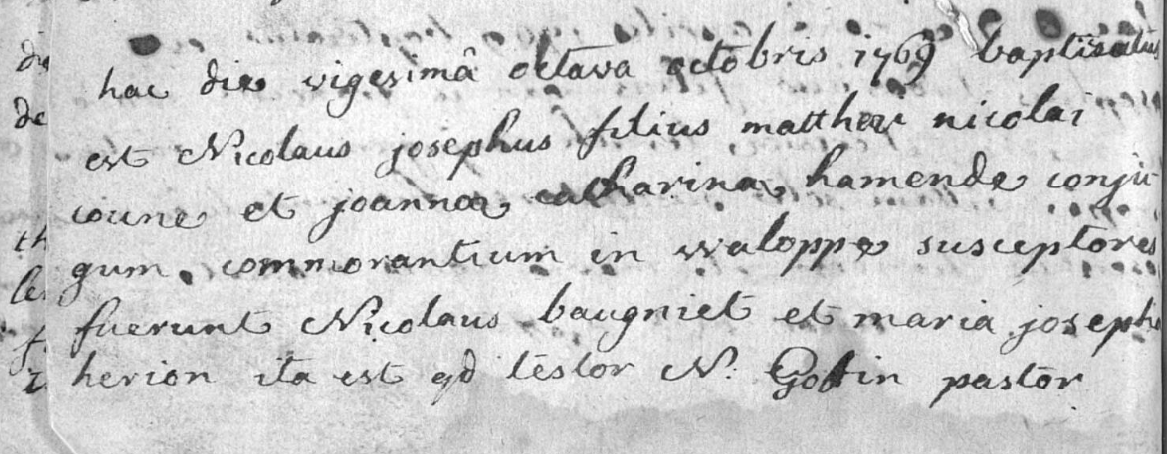 hac die vigesimâ octava octobris 1769 baptisatus
est Nicolaus josephus filius matthei nicolai
coune et joannæ catharinæ hamende conju
gum commorantium in waloppe susceptores
fuerunt Nicolaus baugniet et maria joseph
herion ita est qd testor N. Goffin pastor